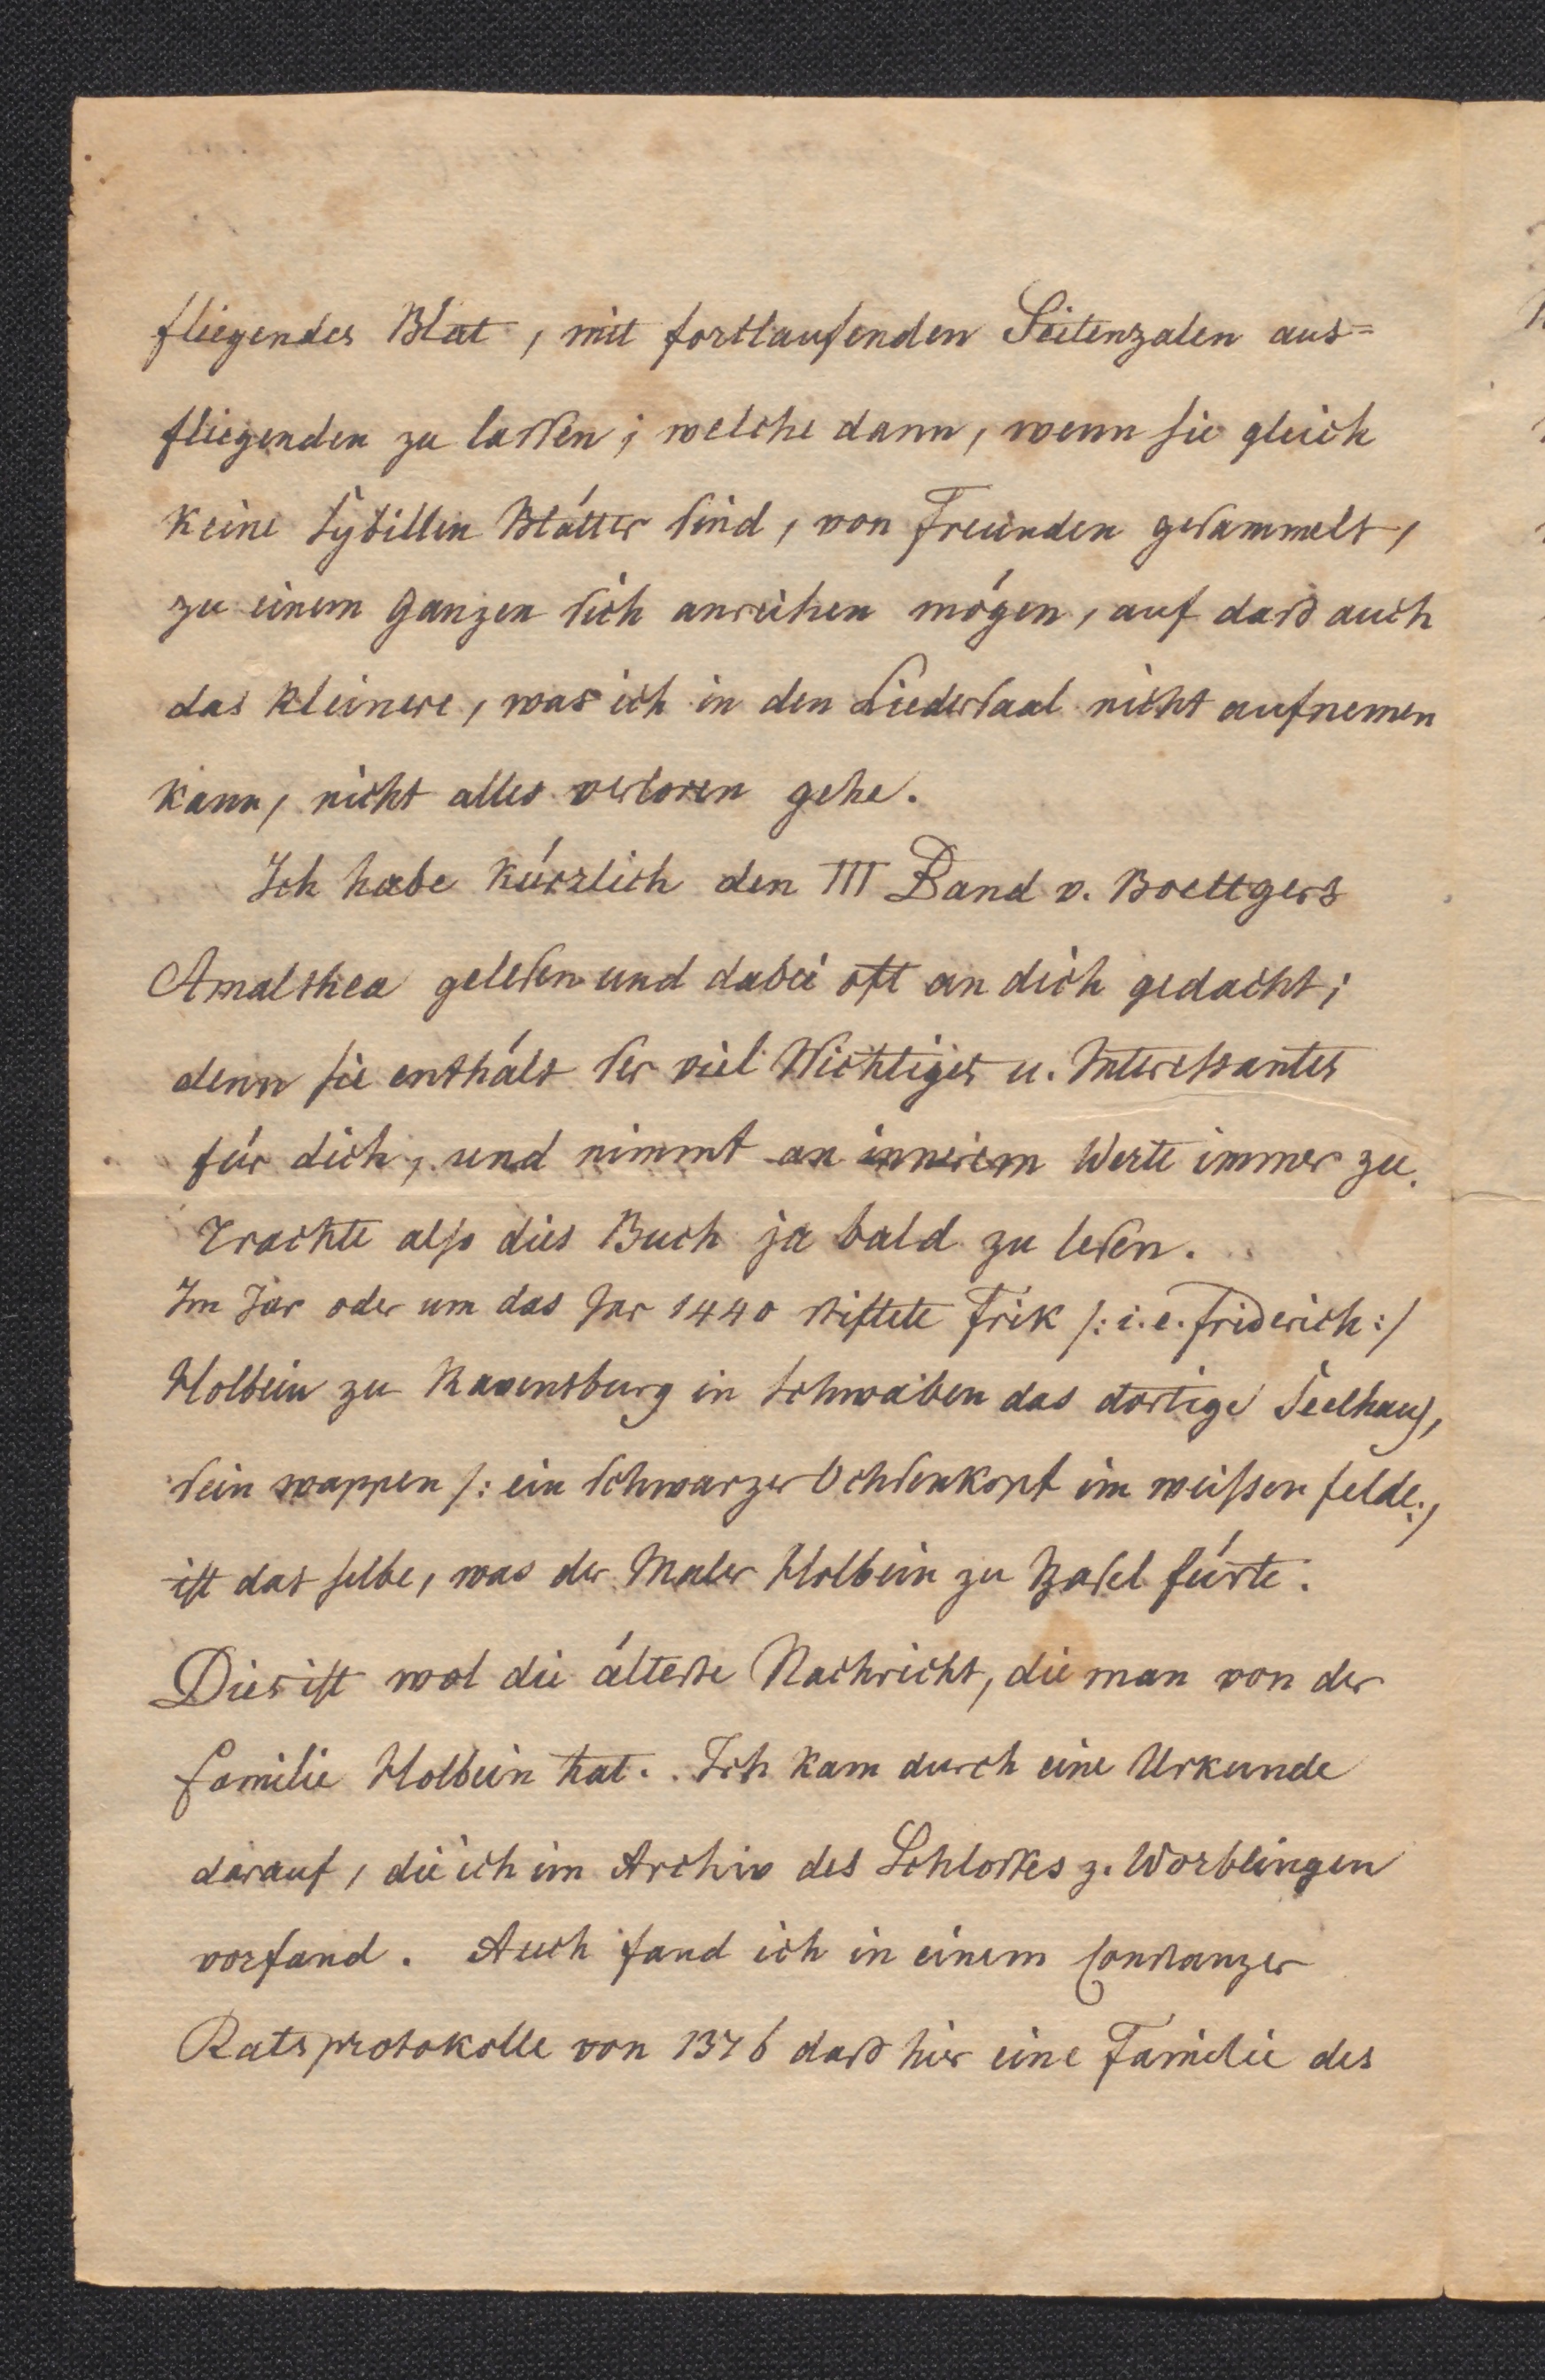 fliegendes Blat, mit fortlaufenden Seitenzalen aus=
fliegenden zu lassen; welche dann, wenn sie gleich
keine Sybillen Blätter sind, von Freunden gesammelt,
zu einem Ganzen sich anreihen mögen, auf dass auch
das kleinere, was ich in den Liedersaal nicht aufnemen
kann, nicht alles verloren gehe.
Ich habe kürzlich den III Band v. Boettgers
Amalthea gelesen und dabei oft an dich gedacht;
denn sie enthält ser viel Wichtiges u. Interessantes
für dich, und nimmt an innerem Werte immer zu.
Trachte also dies Buch ja bald zu lesen.
Im Jar oder um das Jar 1440 stiftete Frik /: i. e. Friderich :/
Holbein zu Ravensburg in Schwaben das dortige Seelhaus,
sein wappen /: ein schwarzer Ochsenkopf im weissen felde :/
ist das selbe, was der Maler Holbein zu Basel fürte.
Dies ist wol die älteste Nachricht, die man von der
Familie Holbein hat. Ich kam durch eine Urkunde
darauf, die ich im Archiv des Schlosses z. Worblingen
vorfand. Auch fand ich in einem Constanzer
Ratsprotokolle von 1376 dass hier eine Familie des